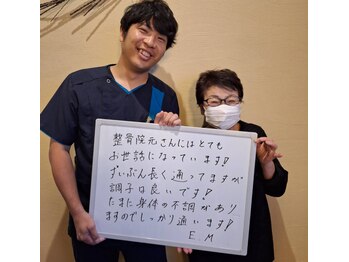 整骨院元さんにはとても
お世話になっています!
ずいぶん長く通ってますが
調子は良いです!
たまに身体の不調があり
ますのでしっかり通います!
E.M